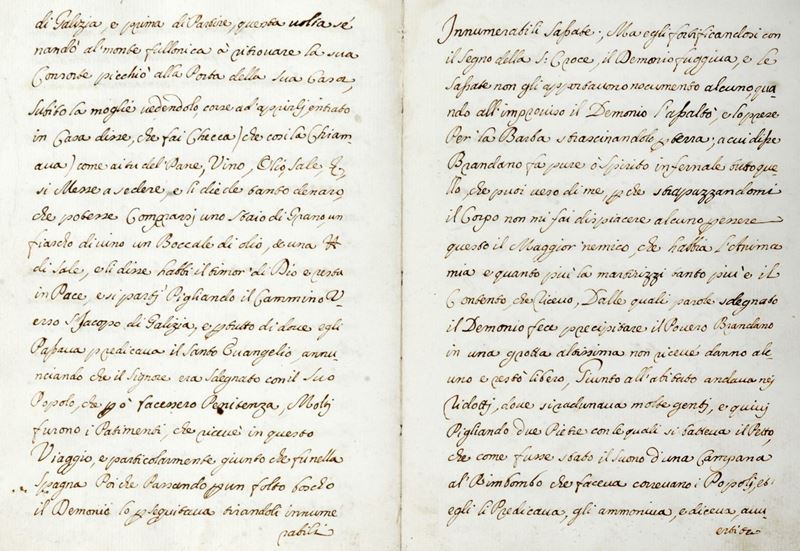 di Galizia, e prima di Partire, questa volta sé
n'andò al'monte fullonica à ritrovare la sua
Consorte picchiò alla Porta della sua Casa,
subito la moglie vedendolo corse ad aprirlj entrato
in Casa disse, che fai Checca) che cosi la Chiam-
ava) come ai tu del Pane, Vino, Olio Sale, &
si Messe a sedere, e li diede tanto denaro,
che potesse Comprarsj uno staio di Grano, un
fiascho di vino un Boccale di olio, & una ℔
di Sale, e li disse habbi il timor' di Dio e resta
in Pace, e si partj Pigliando il Cammino V
erso S. Jacopo di Galizia, e ptutto di dove egli
Passava predicava il Santo Euangelio, annu-
nciando che il Signore era Sdegnato con il Suo
Popolo, che però facessero Penitenza, Moltj
furono i Patimenti, che riceuè in questo
Viaggio, e particolarmente giunto che fu nella
Spagna Poi che Passando p un folto boscho
il Demonio lo pseguitava tirandoli innume
rabili
Innumerabili Sassate; Ma egli fortificandosi con
il Segno della S. Croce, il Demonio fuggiua, e le
Sassate non gli apportavono nocumento alcuno, qua-
ndo all'improuiso il Demonio l'assaltò, e lo prese
Per la Barba strascinandolo p terra; a cui disse
Brandano fa pure ò Spirito infernale tutto que-
llo, che puoi verso di me, pche strapazzandomi
il Corpo non mi fai dispiacere alcuno, p essere
questo il Maggior nemico, che habbia l'Anima
mia e quanto piu' la martirizzi tanto piu' e il
Contento, che riceuo, Dalle quali parole sdegnato
il Demonio fece precipitare il Povero Brandano
in una grotta altissima non riceuè danno alc-
uno e restò libero, Giunto all'abitato andava nej
Ridottj, dove si radunaua molte gentj, e quivj
Pigliando due Pietre con le quali si batteva il Petto,
che come fusse stato il Suono d'una Campana
al Rimbombo che faceva correvano i Popoli, et
egli li Predicava, gli ammoniua, e diceva, auu
ertite